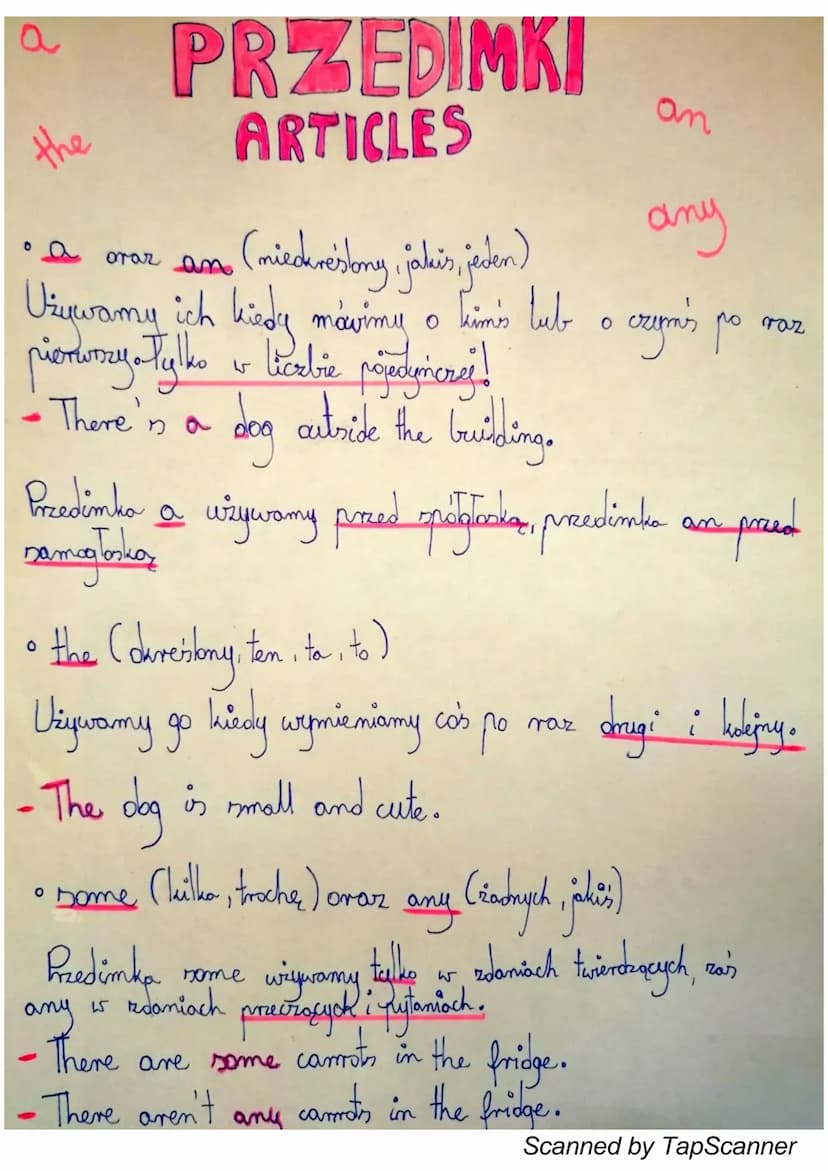 a
PRZEDIMKI
ARTICLES
an
the
any
• a oraz an (nieokreślony, jakiś, jeden)
Używamy ich kiedy mówimy o kimś lub o czymś po raz
pierwszy. Tylko w liczbie pojedyńczej!
- There's a dog outside the building.
Przedimka a używamy przed spółgłoską, przedimka an przed
samogłoską
• the (określony, ten, ta, to)
Używamy go kiedy wymieniamy coś po raz drugi i kolejny.
- The dog is small and cute.
• some (kilka, trochę) oraz any (żadnych, jakiś)
Przedimka some używamy tylko w zdaniach twierdzących, zaś
any w zdaniach przeczących i pytaniach.
- There are some carrots in the fridge.
- There aren't any carrots in the fridge.
Scanned by TapScanner